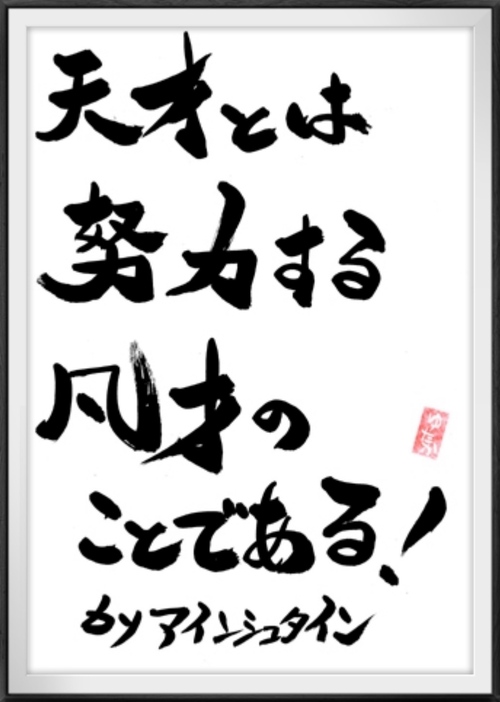 天才とは
努力する
凡才の
ことである!
by アインシュタイン
ゆたか